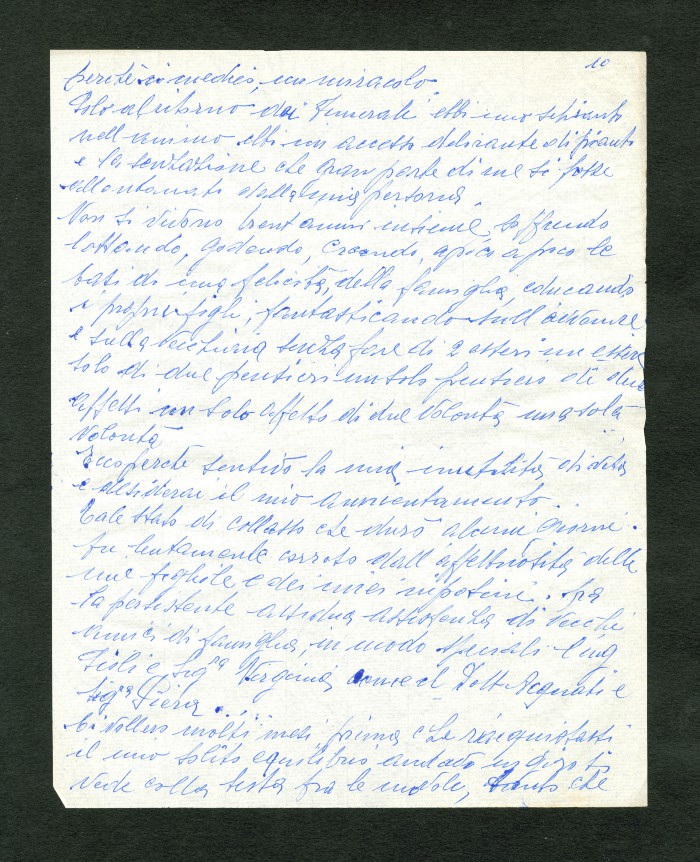 10
perchè i medici, un miracolo.
Solo al ritorno dai Funerali ebbi uno schianto
nell'animo ebbi un accesso delirante di pianto
e la sensazione che gran parte di me si fosse
allontanata dalla mia persona.
Non si vivono trent'anni insieme soffrendo
lottando, godendo, creando, a poco a poco le
basi di una felicità, della famiglia, educando
i propri figli, fantasticando sull'avvenire
e sulla vecchiaia senza fare di 2 esseri un essere
solo di due pensieri un solo pensiero di due
affetti un solo affetto di due volontà una sola
volontà
Ecco perchè sentivo la mia inutilità di vita
e desiderai il mio annientamento.
Tale stato di collasso che durò alcuni giorni.
fu lentamente corroso dall'affettuosità delle
mie figliole e dei miei nipotini. fra
la persistente assidua assistenza di vecchi
amici di famiglia, in modo speciale l'ing
e Sigra Virginia come il Dott
Sigra Piera.
Ci vollero molti mesi prima che riacquistassi
il mio solito equilibrio andavo in giro si
vede colla testa fra le nuvole, tanto che